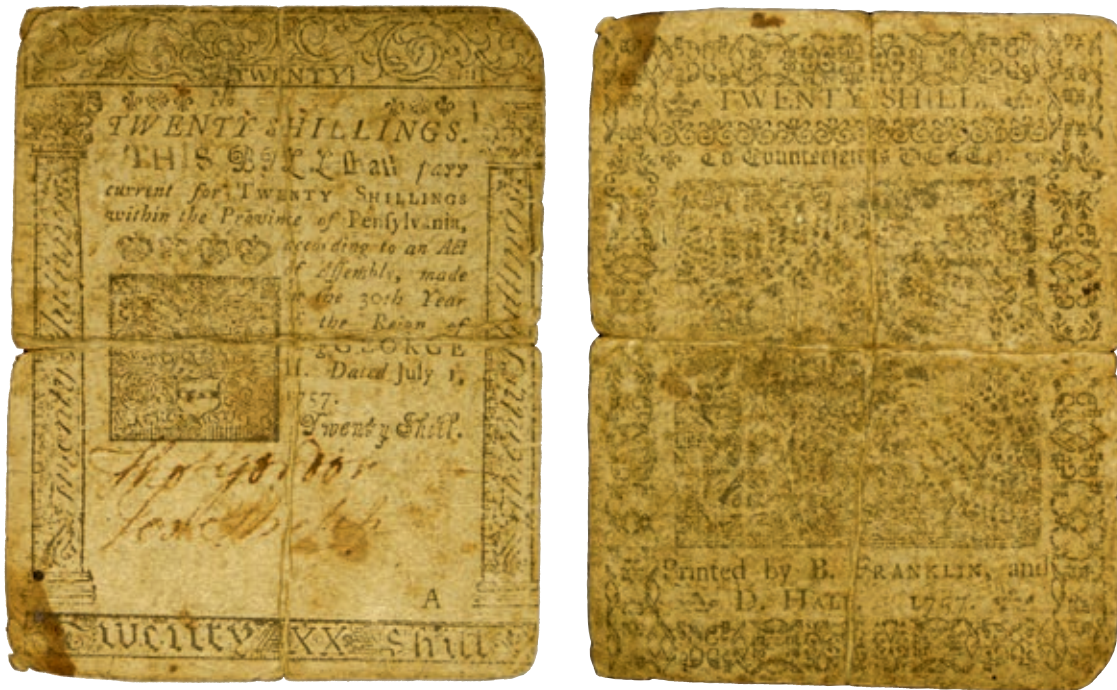 TWENTY
TWENTY SHILLINGS.
THIS BILL ſhall paſs
current for TWENTY SHILLINGS
within the Province of Penſylvania,
according to an Act
of Aſſembly, made
in the 30th Year
the Reign of
GEORGE
II. Dated July 1,
1757.
Twenty Shill.
Twenty Shillings
Twenty Shillings
Tho Gordon
A
Twenty XX Shill
TWENTY SHILL
To Counterfeit is DEATH.
Printed by B. FRANKLIN, and
D. HALL. 1757.